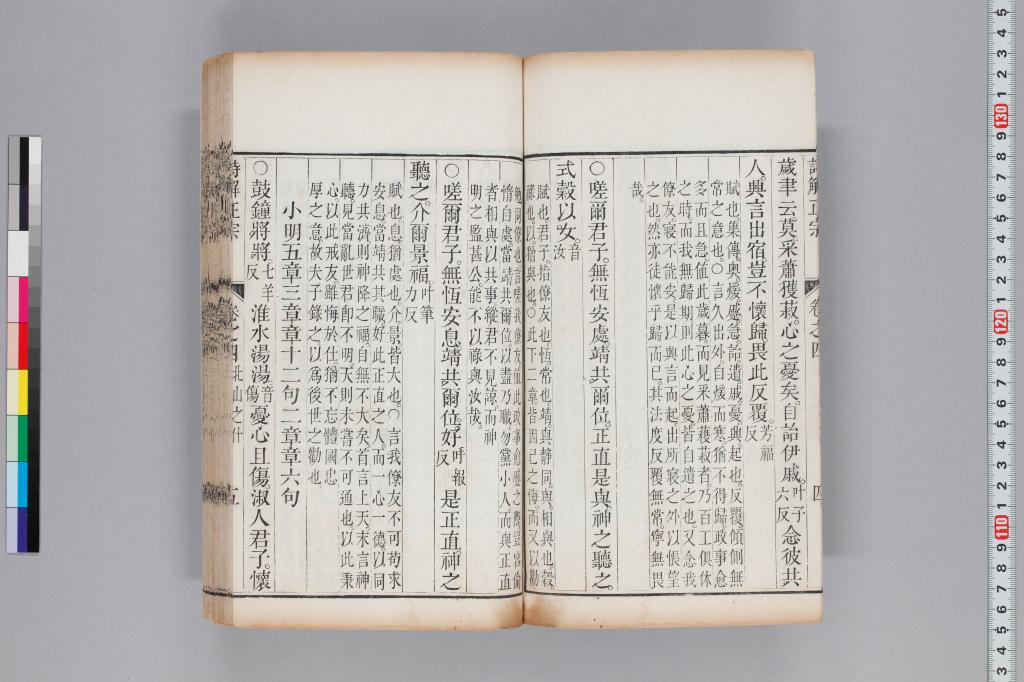 詩解正宗 卷之四 四
歲聿云莫采蕭穫菽。心之憂矣。自詒伊戚。叶子六反 念彼共
人。興言出宿。豈不懷歸。畏此反覆。芳福反
賦也。集傳。奧。煖。蹙。急。詒。遺。戚。憂。興。起也。反覆。傾側無
常之意也。○言久出外。自煖而寒。猶不得歸。政事愈
多。而且急。値此歲暮。而見采蕭穫菽者。乃百工俱休
之時。而我無歸期。則此心之憂。皆自遺之也。又念我
僚友。寢不能安。是以興言而起。出所寢之外。以悵望
之也。然亦徒懷乎歸而已。其法度反覆無常。寧無畏
哉。
○嗟爾君子。無恆安處。靖共爾位。正直是與。神之聽之。
式穀以女。音汝
賦也。君子。指僚友也。恆。常也。靖與靜同。與。相與也。穀。
祿也。以。猶與也。○此下二章。皆因己之悔。而又以勸
勉同僚也。言嗟我僚友。値此政事愈蹙之際。豈容偸
惰自處。當靖共爾位。以盡乃職。勿黨小人。而與正直
者相與以共事。縱君不見諒。而神
明之監甚公。能不以祿與汝哉。
○嗟爾君子。無恆安息。靖共爾位。好呼報反 是正直。神之
聽之。介爾景福。叶筆力反
賦也。息。猶處也。介景。皆大也。○言我僚友。不可苟求
安息。當靖共其職。好此正直之人。而一心一德。以同
力共濟。則神降之福。自無不大矣。首言上天。末言神
聽。見當亂世。君卽不明。天則未嘗不可通也。以此秉
心。以此戒友。雖悔於仕。猶不忘體國忠
厚之意。故夫子錄之。以爲後世之勸也。
小明五章三章章十二句二章章六句
○鼓鐘將將。七羊反 淮水湯湯。音傷 憂心且傷。淑人君子。懷
詩解正宗 卷之四 北山之什 五